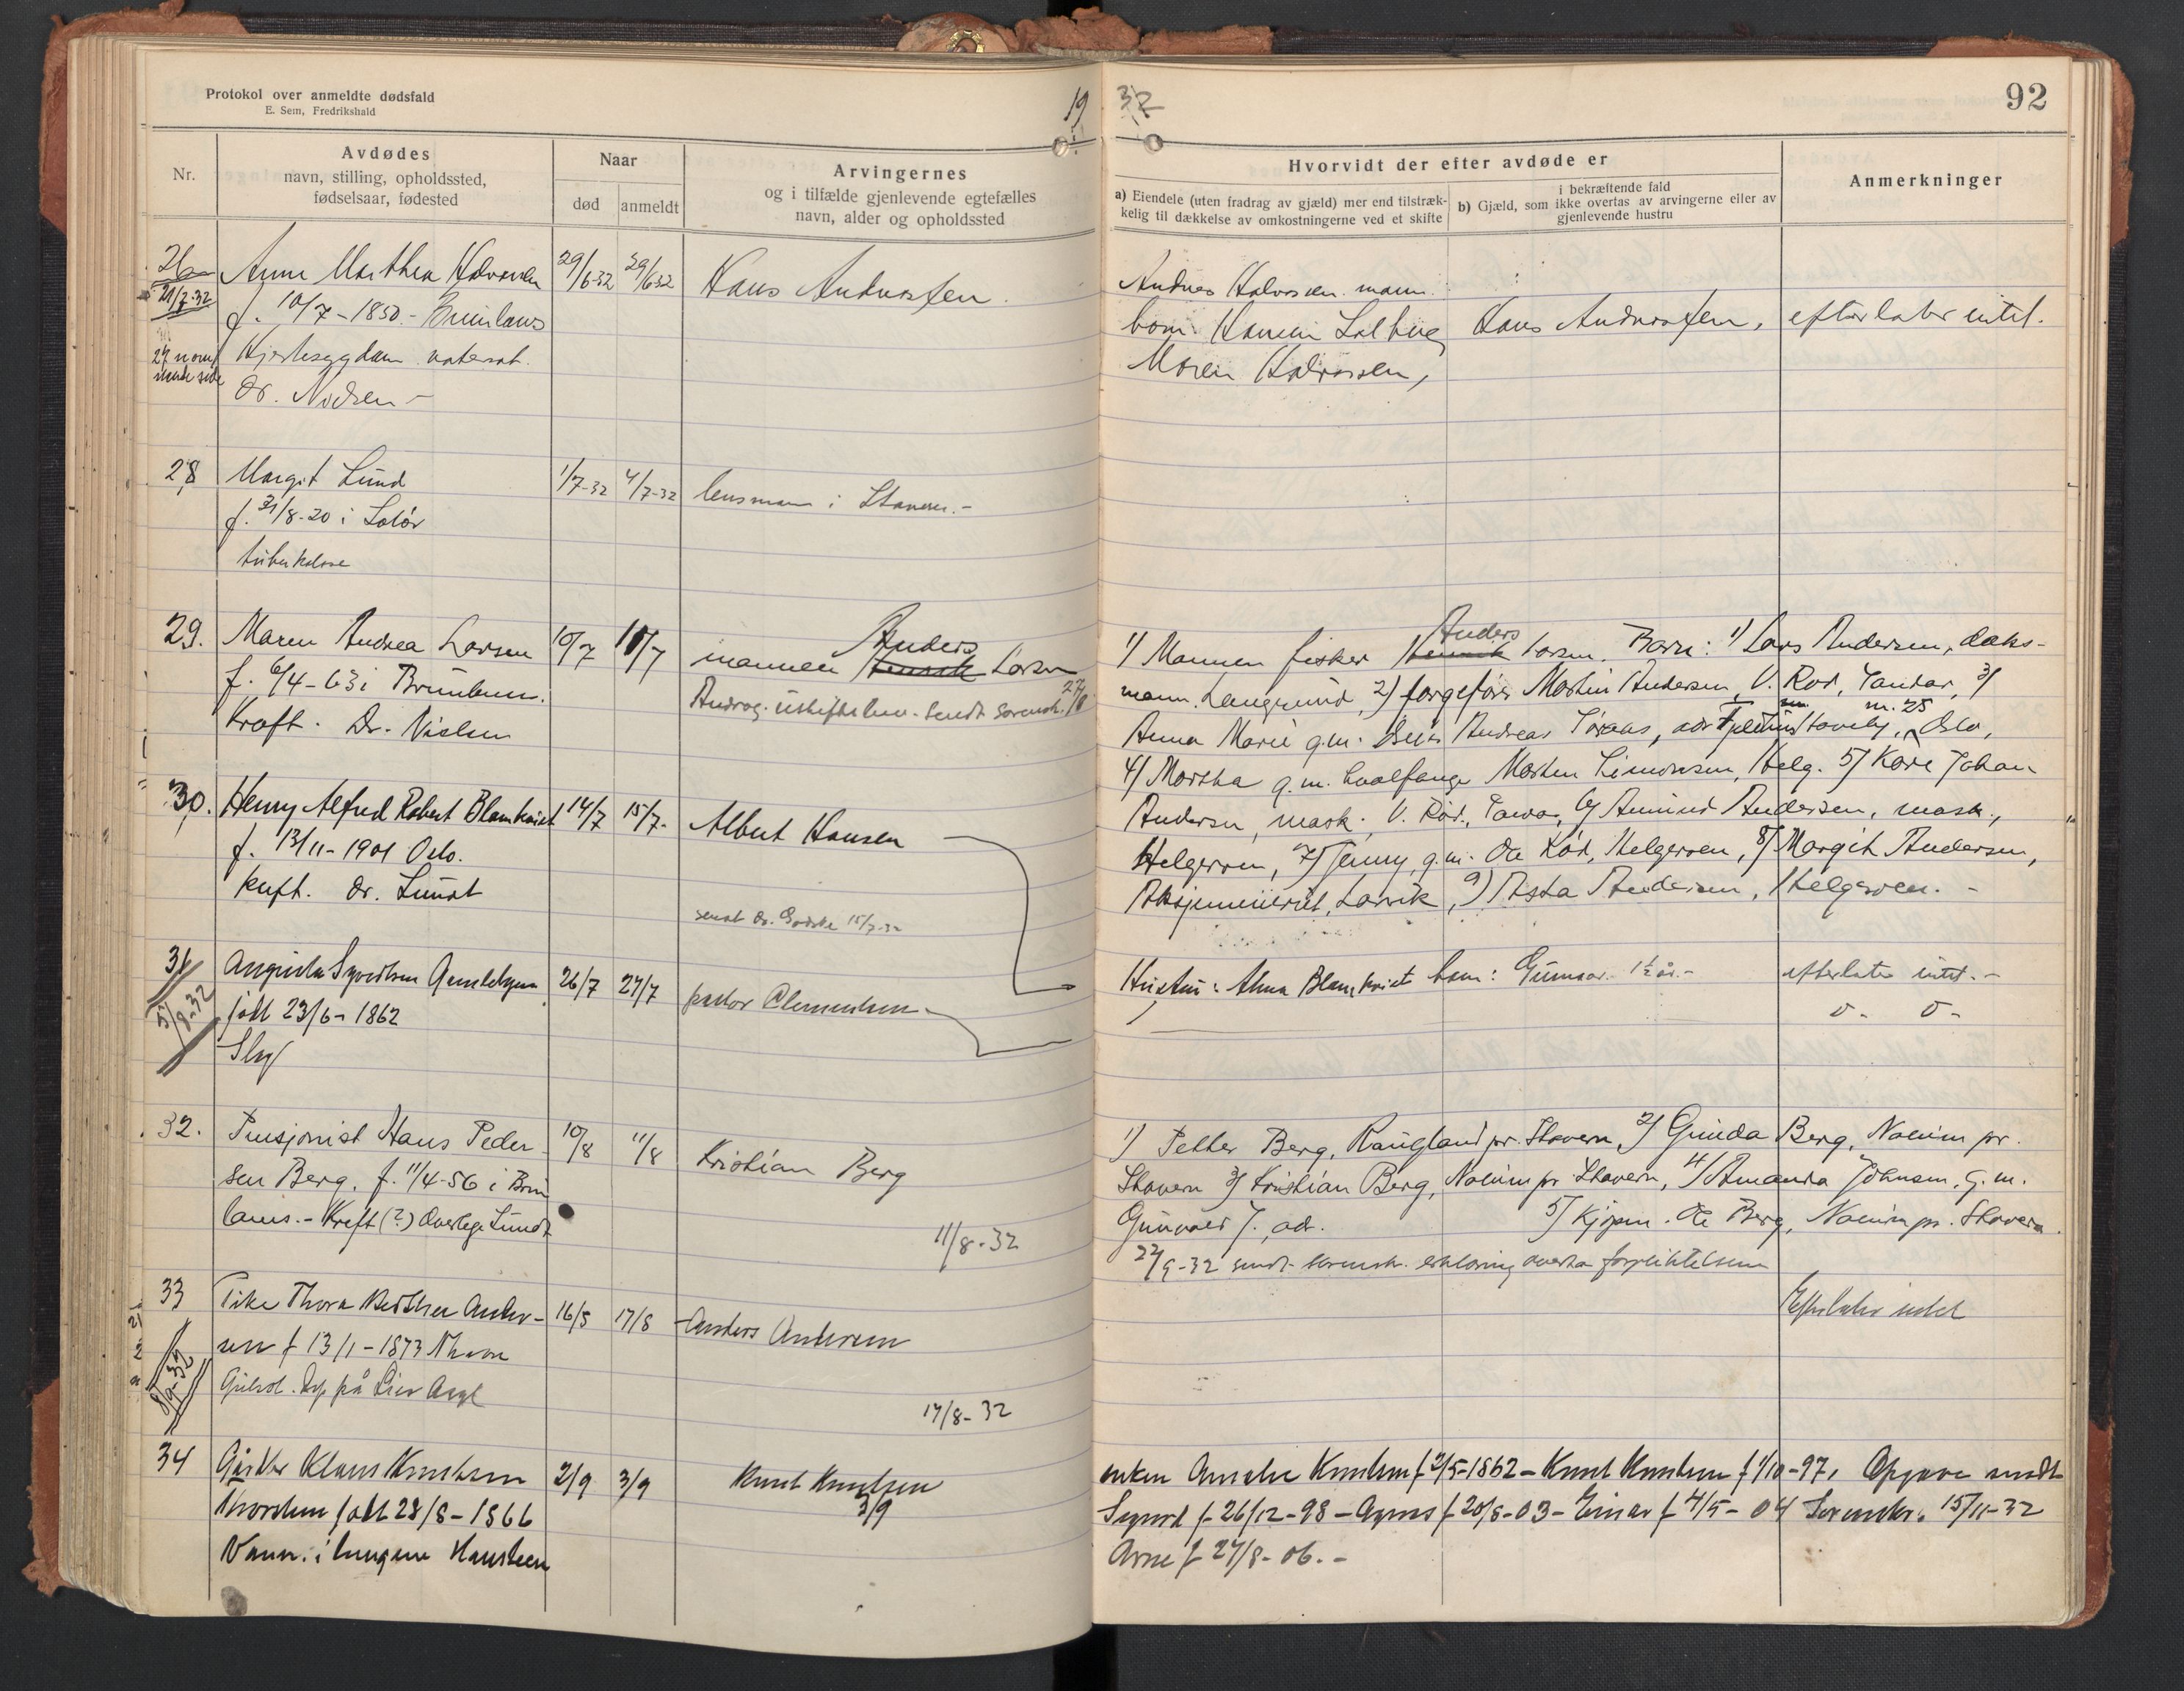 Protokol over anmeldte dødsfald
E. Sem, Fredrikshald
19 32
92
Nr.
Avdødes
navn, stilling, opholdssted,
fødselsaar, fødested
Naar
død
anmeldt
Arvingernes
og i tilfælde gjenlevende egtefælles
navn, alder og opholdssted
Hvorvidt der efter avdøde er
a) Eiendele (uten fradrag av gjæld) mer end tilstræk-
kelig til dækkelse av omkostningerne ved et skifte
i bekræftende fald
b) Gjæld, som ikke overtas av arvingerne eller av
gjenlevende hustru
Anmerkninger
26 Anne Marthea Halvorsen 29/6-32 29/6-32 Hans Andreassen.
21/7-32
f. 10/7-1850 - Brunlanes
27 nest
side
Hjertesygdom
Dr. Nielsen -
Andreas Halvorsen mann.
barn: Solberg Hans Andreassen, efterlater intet.
Maren Halvorsen,
28 Margit Lund 1/7-32 4/7-32 lensmann i Stavern.-
f. 31/8-20 i Solør
tuberkolose
29. Maren Andrea Larsen 10/7 10/7 mannen Henrik Anders Larsen
f. 6/4-63 i Brunlanes.
Andrag. uskiftebev. sendt sorensk. 27/8
Kræft. Dr. Nielsen
1/ Mannen fisker Henrik Anders Larsen. Barn: 1/ Lars Andersen, dæks-
mann. Langesund, 2) fargefører Martin Andersen, V. Rød, Tandar, 3/
Anna Marie g.m. Andreas, adr. m. 25 Oslo,
4/ Martha g.m. hvalfanger Morten Simonsen, Helg. 5/ Kåre Johan
Andersen, mask., V. Rød, 6/ Amund Andersen, mask.,
Helgeroen, 7/ Jenny, g.m. Ole Rød, Helgeroen, 8/ Margit Andersen,
Larvik, 9) Asta Andersen, Helgeroen. -
30. Henry Alfred Robert Blomkvist 14/7 15/7- Albert Hansen
f. 13/11-1901 Oslo.
kreft. Dr. Lundt
sendt Dr. 15/7-32
Hustru: Alma Blomkvist barn: Gunnar 1½ år.- efterlater intet.-
31 Augusta Syvertsen 26/7 27/7 pastor Clementsen
5/8-32
født 23/6-1862
Slag
o- o-
32. Pensjonist Hans Peder- 10/8 11/8 Kristian Berg
sen Berg, f. 11/4-56 i Brun
lanes.- Kreft (?) Overlege Lundt
11/8-32
1/ Petter Berg, Rangland pr. Stavern, 2/ Gunda Berg, Nalum pr.
Stavern 3/ Kristian Berg, Nalum pr Stavern, 4/ Amanda Johnsen, g.m.
Gunvald J., ad. 5/ Kjøpm. Ole Berg, Nalum pr. Stavern.
22/9-32 sendt sorensk. erklæring overta forpliktelsene
33 Pike Thora Berthea Ander- 16/8 17/8 Anders Andersen
sen f 13/1-1873
8/9-32
på Asyl
17/8-32
Efterlater intet
34 Gårdbr Klaus Knutsen 2/9 3/9 Knut Knutsen
3/9
født 28/8-1866
Vann. i lungene Hansteen
enken Amalie Knutsen f 2/5-1862 - Knut Knutsen f 1/10-97, Opgave sendt
Sigurd f 26/12-98 - Agnes f 20/8-03 - Einar f 4/5-04 Sorenskr. 15/11-32
Arne f 27/8-06.-